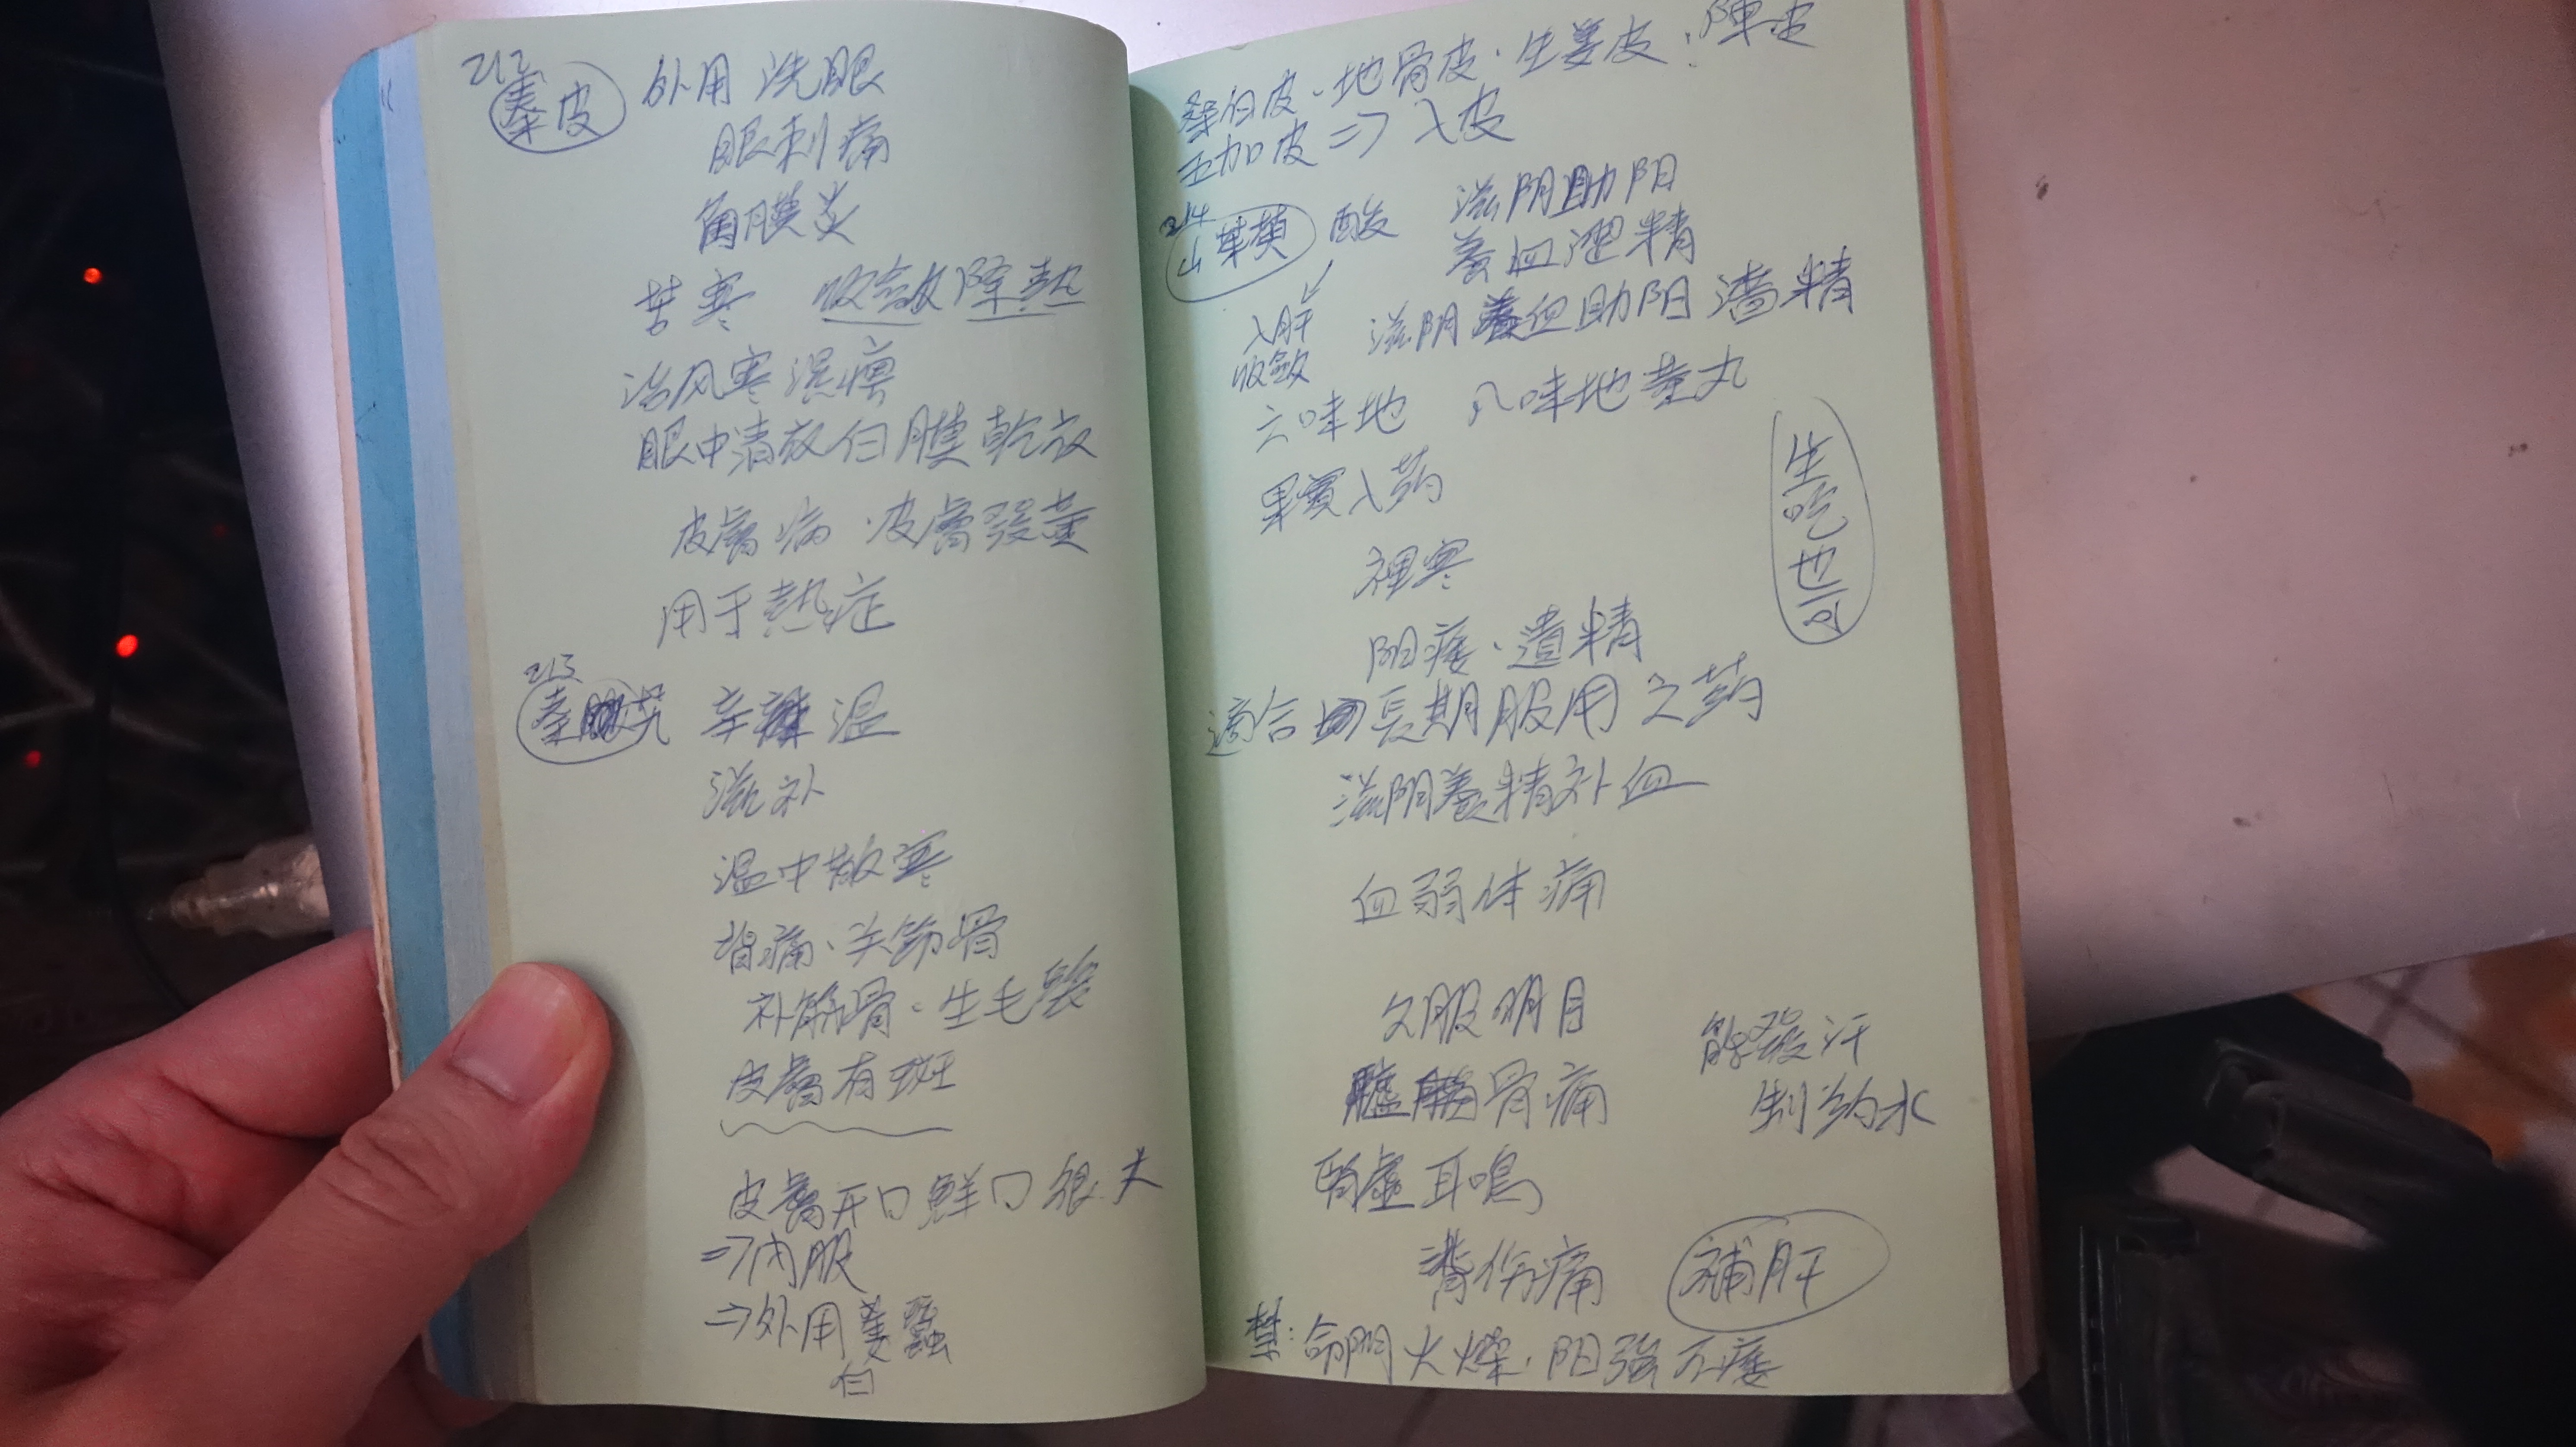 212
秦皮 外用 洗眼
眼刺痛
角膜炎
苦寒 收敛除熱
治风寒湿痹
眼中清 白膜乾
皮膚病、皮膚發黃
用于熱症
213
秦艽 辛 温
滋补
温中散寒
背痛、关節骨
补筋骨、生毛髮
皮膚有斑
皮膚开口鮮 口很大
⇒内服
⇒外用姜蠶
白
桑白皮、地骨皮、生姜皮、陳皮
五加皮 ⇒ 入皮
214
山茱萸 酸 滋阴助阳
養血 精
↙
入肝
收斂
滋阴養血助阳 精
六味地 八味地黄丸
果實入药
生吃也可
裡寒
阳痿、遺精
適合 長期服用之药
滋阴養精补血
血弱体痛
久服明目
能發汗
骨痛
制約水
腎虛耳鳴
背伤痛
補肝
禁:命門火燥、阳強不痿